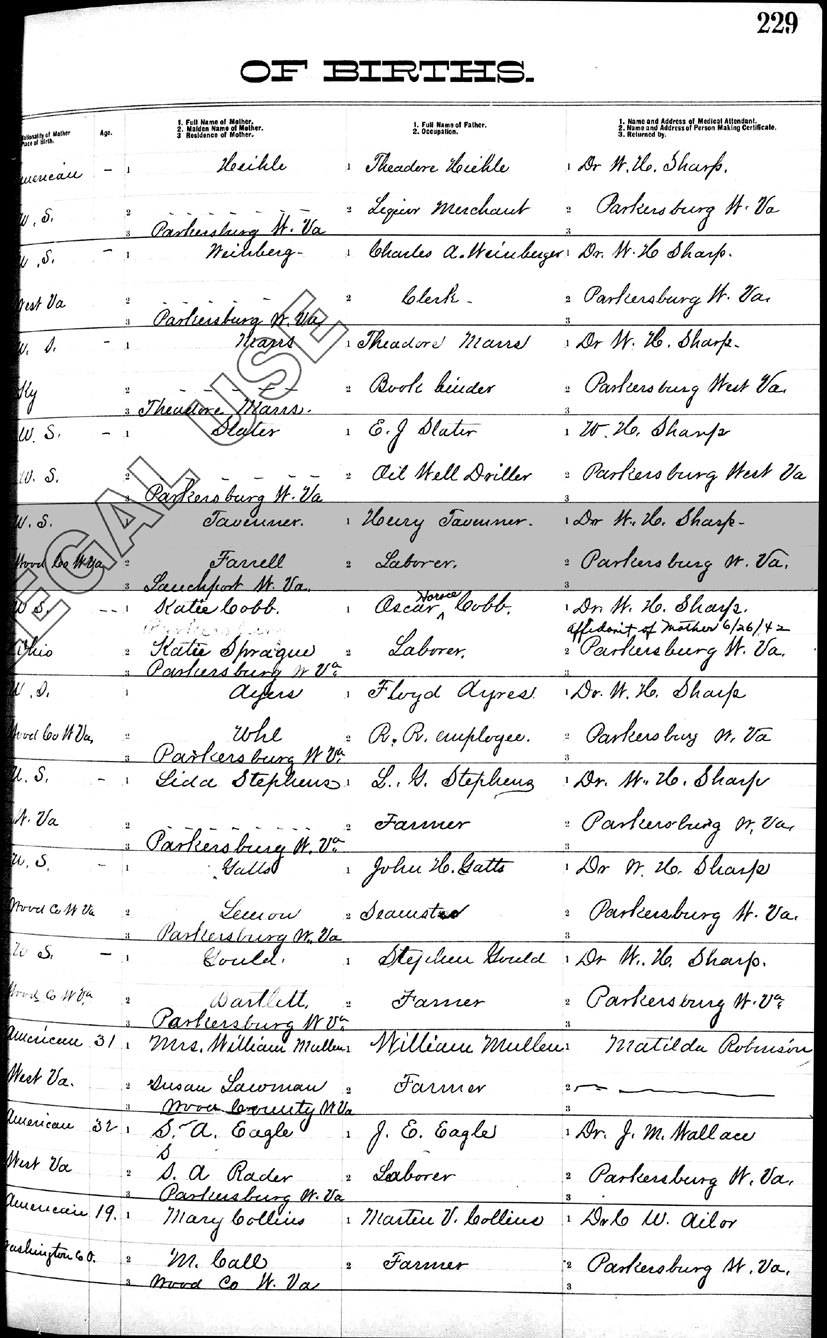 229
OF BIRTHS.
Nationality of Mother Age. 1. Full Name of Mother. 1. Full Name of Father. 1. Name and Address of Medical Attendant.
Place of Birth. 2. Maiden Name of Mother. 2. Occupation. 2. Name and Address of Person Making Certificate.
3 Residence of Mother. 3. Returned by.
American - 1 Heihle 1 Theadore Hiehle 1 Dr W. H. Sharp.
U.S. 2 - - - - - - - 2 Liquor Merchant 2 Parkersburg W. Va
3 Parkersburg W. Va 3
U.S. - 1 Weinberg- 1 Charles A. Weinberger 1 Dr. W. H Sharp.
West Va 2 - - - - - - 2 Clerk - 2 Parkersburg W. Va.
3 Parkersburg W. Va 3
U. S. - 1 Marrs 1 Theadore Marrs 1 Dr W. H. Sharp-
Ky 2 - - - - - 2 Book binder 2 Parkersburg West Va.
3 Theadore Marrs. 3
U.S. - 1 Slater 1 E. J Slater 1 W. H. Sharp
U.S. 2 - - - 2 Oil Well Driller 2 Parkersburg West Va
3 Parkersburg W. Va 3
U.S. 1 Tavenner. 1 Henry Tavenner. 1 Dr W. H. Sharp-
Wood Co W Va 2 Farrell 2 Laborer. 2 Parkersburg W. Va.
3 W. Va. 3
U S. -- 1 Katie Cobb. 1 Oscar Horace Cobb. 1 Dr. W. H. Sharp.
Affidavit of Mother 6/26/42
Ohio 2 Katie Sprague 2 Laborer. 2 Parkersburg W. Va.
3 Parkersburg W Va 3
U.S. 1 Ayers 1 Floyd Ayres 1 Dr. W. H. Sharp
Wood Co W Va, 2 Uhl 2 R. R. employee. 2 Parkersburg W. Va
3 Parkersburg W Va 3
U.S. - 1 Lida Stephens 1 L. G. Stephens 1 Dr. W. H. Sharp
W. Va 2 - - - - - - - 2 Farmer 2 Parkersburg W, Va.
3 Parkersburg W. Va 3
U.S. - 1 Gatts 1 John H. Gatts 1 Dr W. H. Sharp
Wood Co W Va 2 Lemon 2 2 Parkersburg W. Va.
3 Parkersburg W. Va 3
U S. - 1 Gould. 1 Stephen Gould 1 Dr W. H. Sharp.
Wood Co W Va 2 Bartlett, 2 Farmer 2 Parkersburg W. Va
3 Parkersburg W Va 3
American 31 1 Mrs. William Mullen 1 William Mullen 1 Matilda Robinson
West Va. 2 Susan Lawman 2 Farmer 2
3 Wood County W Va 3
American 32 1 S. A. Eagle 1 J. E. Eagle 1 Dr. J. M. Wallace
S
West Va 2 S. A Rader 2 Laborer 2 Parkersburg W. Va.
3 Parkersburg W. Va 3
American 19. 1 Mary Collins 1 Martin V. Collins 1 Dr C W. Ailor
Washington Co. 2 M. Call 2 Farmer 2 Parkersburg W. Va.
3 Wood Co W. Va 3
EGAL USE